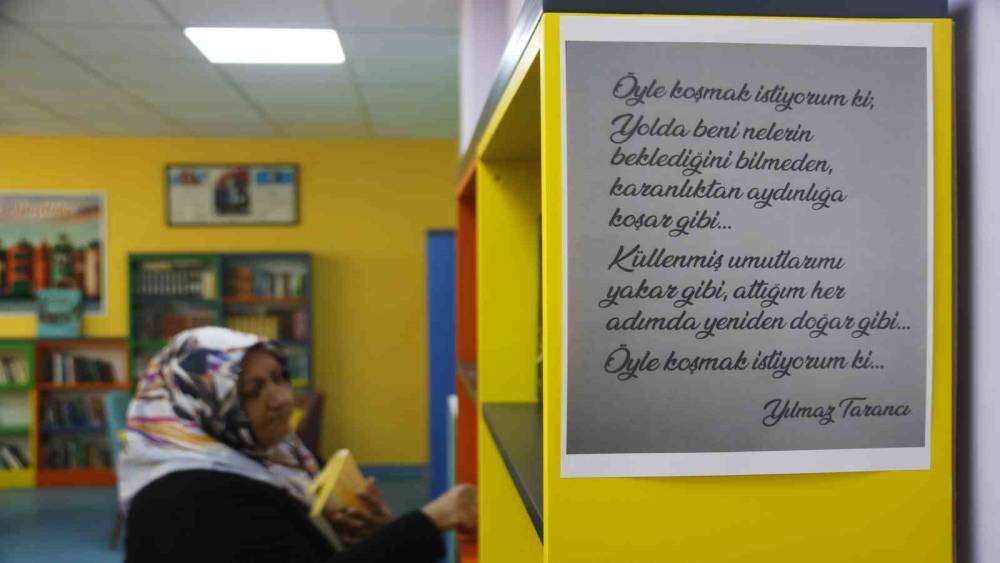 Öyle koşmak istiyorum ki;
Yolda beni nelerin
beklediğini bilmeden,
karanlıktan aydınlığa
koşar gibi...
Küllenmiş umutlarımı
yakar gibi, attığım her
adımda yeniden doğar gibi...
Öyle koşmak istiyorum ki...
Yılmaz Tarancı